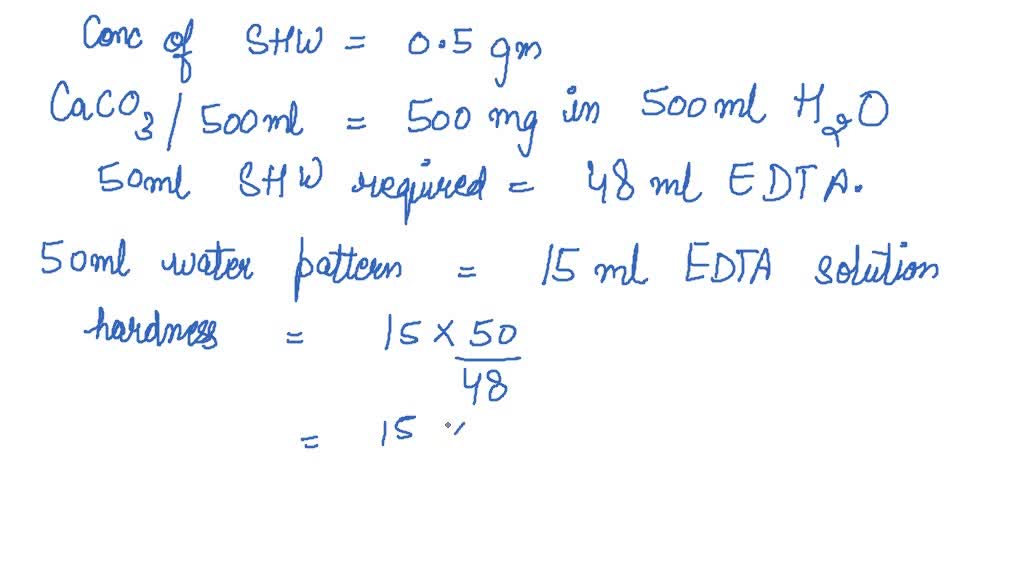 Conc of SHW = 0.5 gm
CaCO3 / 500ml = 500 mg in 500ml H2O
50ml SHW required = 48 ml EDTA.
50ml water pattern = 15 ml EDTA solution
hardness = 15 × 50
48
= 15